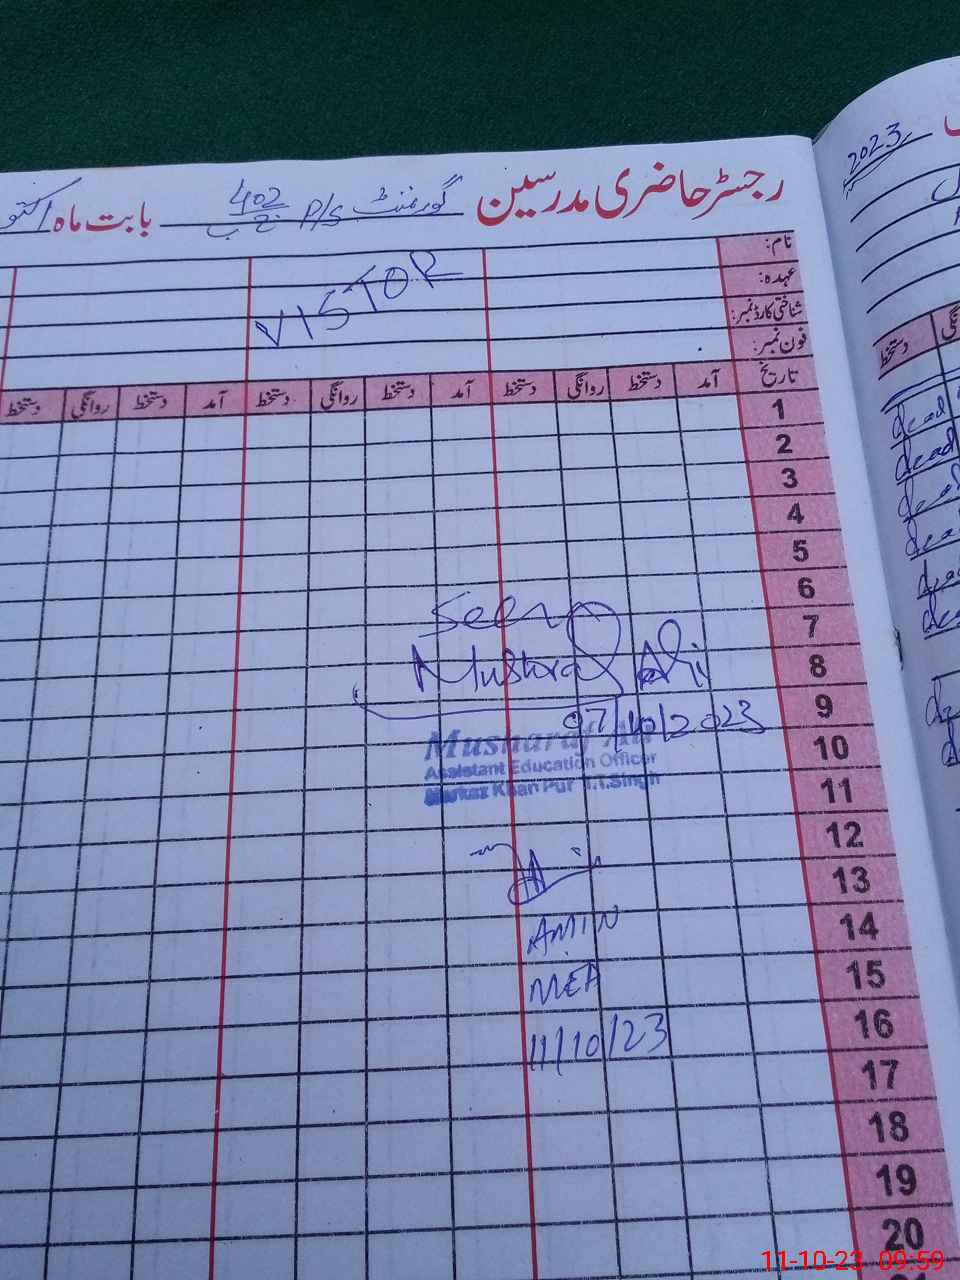 رجسٹر حاضری مدرسین گورنمنٹ P/S 402 ج ب بابت ماہ اکتو
2023
نام:
عہدہ:
شناختی کارڈ نمبر:
فون نمبر:
VISTOR
تاریخ آمد دستخط روانگی دستخط آمد دستخط روانگی دستخط آمد دستخط روانگی دستخط
دستخط
1
2
3
4
5
6
7
8
9
10
11
12
13
14
15
16
17
18
19
20
Seen
Musharaf Ali
07/10/2023
Musharaf Ali
Assistant Education Officer
Markaz Khan Pur T.T.Singh
AMIN
MEA
11/10/23
dead
dead
11-10-23 09:59